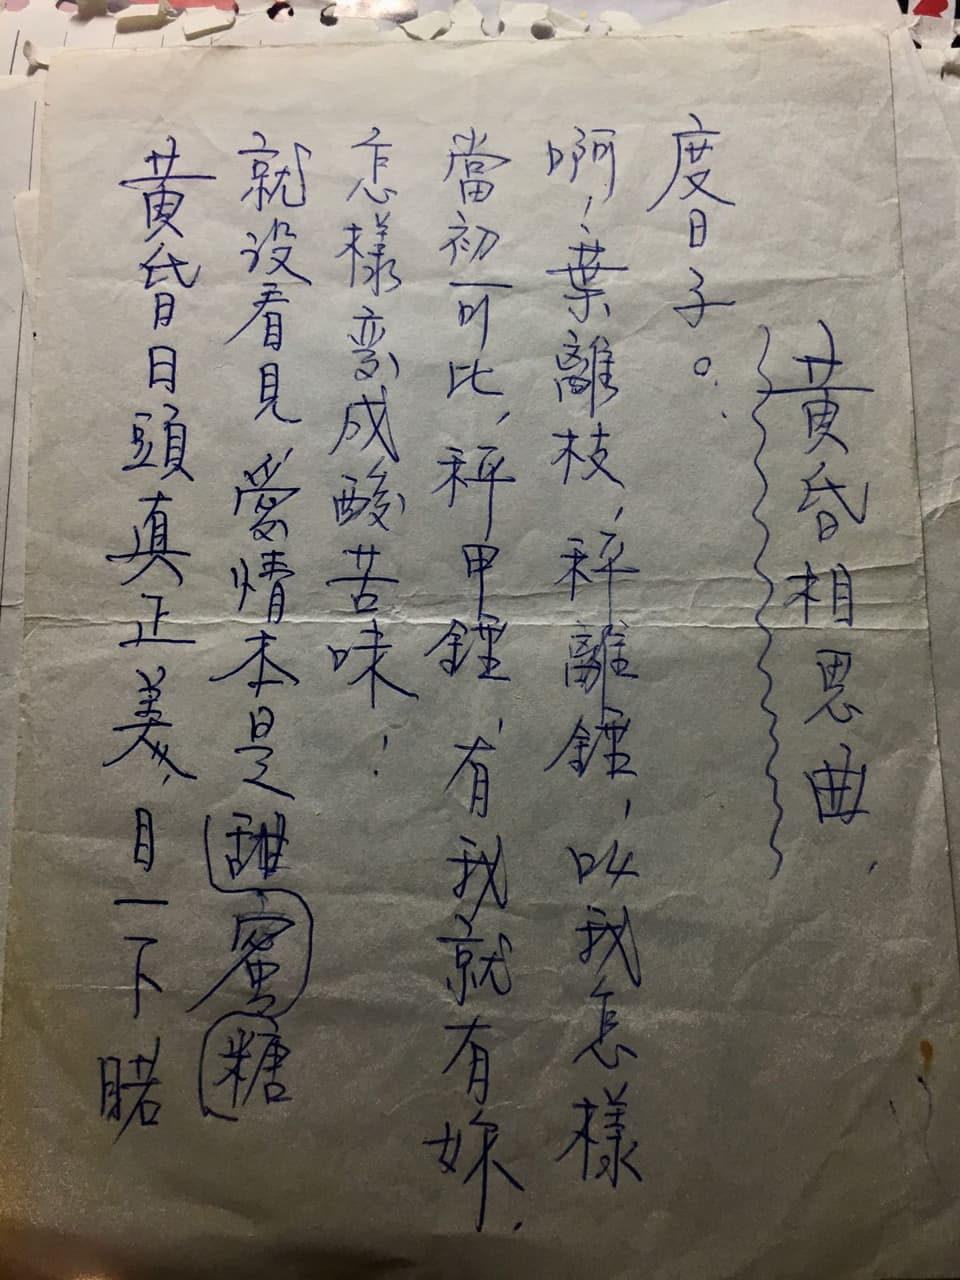 黄昏相思曲.
黄昏日頭真正美,目一下睹
就没看見,愛情本是甜蜜糖
怎樣変成酸苦味!
當初可比,秤甲錘,有我就有妳.
啊!葉離枝,秤離錘,叫我怎樣
度日子。